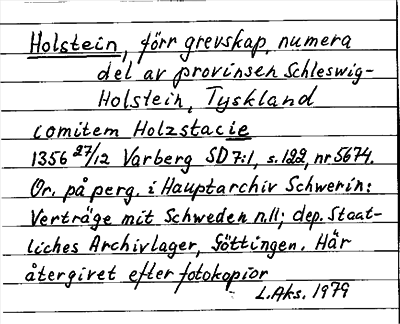 Holstein, förr grevskap, numera
del av provinsen Schleswig-
Holstein, Tyskland
comitem Holzstacie
1356 27/12 Varberg SD 7:1, s.122, nr 5674.
Or. på perg. i Hauptarchiv Schwerin:
Verträge mit Schweden n.11; dep. Staat-
liches Archivlager, Göttingen. Här
återgivet efter fotokopior
L.Aks. 1979